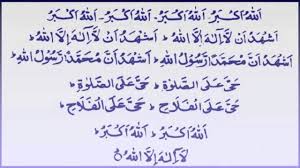 اَللّٰهُ اَكْبَرُ اَللّٰهُ اَكْبَرُ - اَللّٰهُ اَكْبَرُ اَللّٰهُ اَكْبَرُ
اَشْهَدُ اَنْ لَّا اِلٰهَ اِلَّا اللّٰهُ ؕ اَشْهَدُ اَنْ لَّا اِلٰهَ اِلَّا اللّٰهُ ؕ
اَشْهَدُ اَنَّ مُحَمَّدًا رَّسُوْلُ اللّٰهِ ؕ اَشْهَدُ اَنَّ مُحَمَّدًا رَّسُوْلُ اللّٰهِ ؕ
حَیَّ عَلَی الصَّلٰوةِ ؕ حَیَّ عَلَی الصَّلٰوةِ ؕ
حَیَّ عَلَی الْفَلَاحِ ؕ حَیَّ عَلَی الْفَلَاحِ ؕ
اَللّٰهُ اَكْبَرُ ؕ اَللّٰهُ اَكْبَرُ ؕ
لَا اِلٰهَ اِلَّا اللّٰهُ